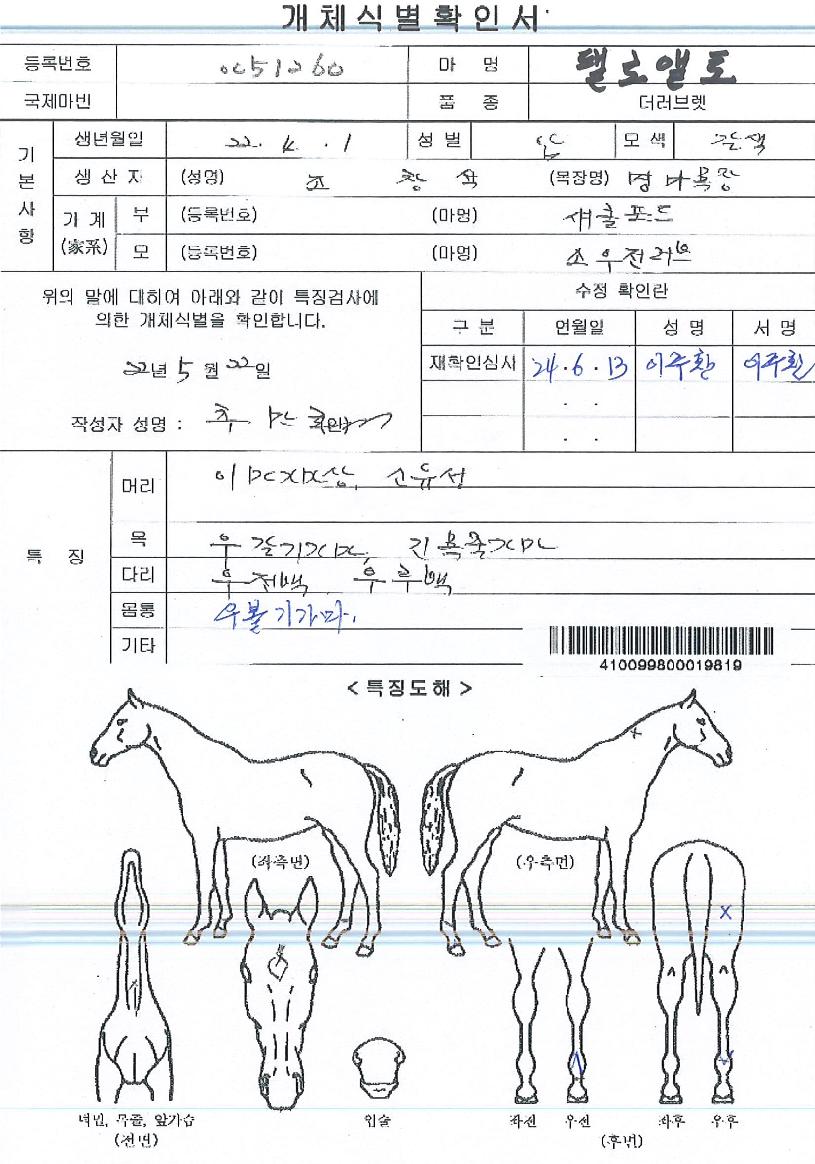 개체식별확인서
등록번호 0051260 마 명 펠로앨토
국제마빈 품 종 더러브렛
기본사항
생년월일 22. 4. 1 성 별 암 모 색 갈색
생 산 자 (성명) 조 창 석 (목장명) 명마목장
가 계 (家系) 부 (등록번호) (마명) 섀클포드
모 (등록번호) (마명) 소우전러브
위의 말에 대하여 아래와 같이 특징검사에
의한 개체식별을 확인합니다.
22년 5 월 22일
작성자 성명 :
수정 확인란
구 분 언월일 성 명 서 명
재확인심사 24. 6. 13 이주환 이주환
특 징
머리
목 우
다리 우전백 우후백
몸통 우볼기가마.
기타
410099800019819
< 특징도해 >
(좌측면) (우측면)
녁민, 목줄, 앞가슴 (전면)
입술
좌전 우전 좌후 우후
(후면)